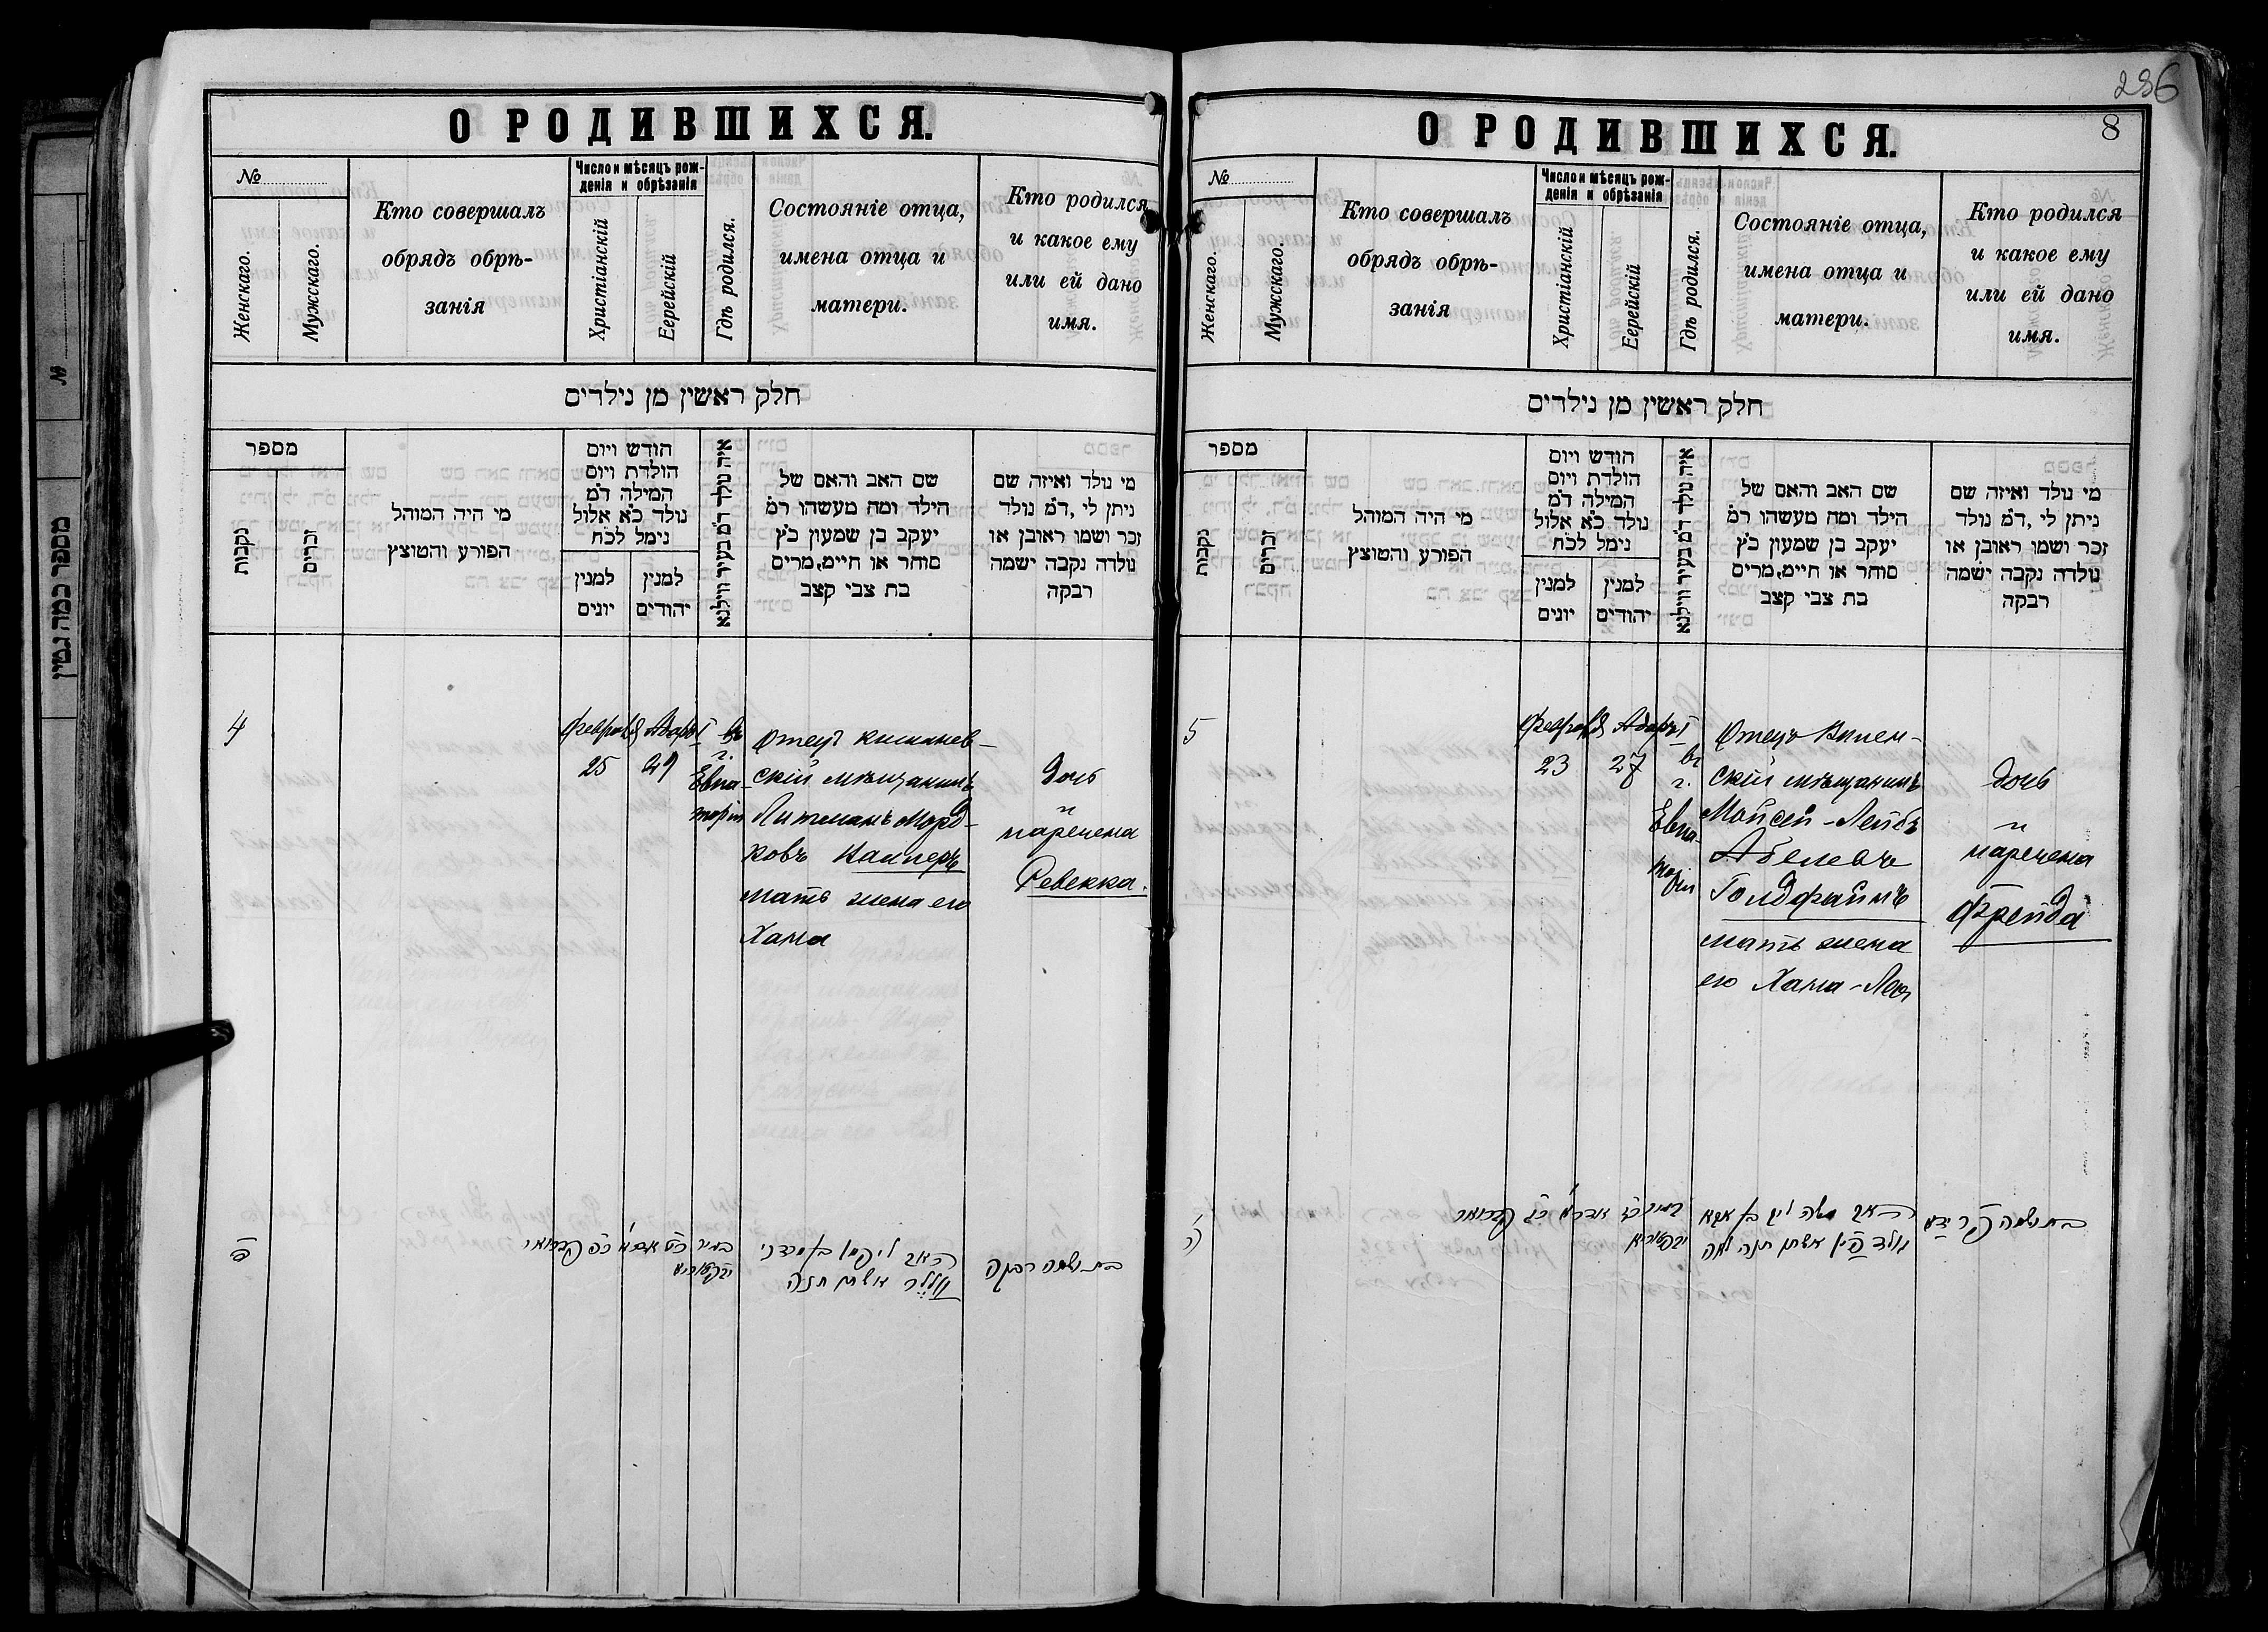 О РОДИВШИХСЯ.
№
Женскаго.
Мужскаго.
Кто совершалъ
обрядъ обрѣ-
занія
Число и мѣсяцъ рож-
денія и обрѣзанія
Христіанскій
Еерейскій
Гдѣ родился.
Состояніе отца,
имена отца и
матери.
Кто родился
и какое ему
или ей дано
имя.
חלק ראשין מן נילדים
מספר
נקבות
זכרים
מי היה המוהל
הפורע והטוצץ
הודש ויום
הולדת ויום
המילה ד״מ
נולד כ״א אלול
נימל לכ״ח
למנין
יונים
למנין
יהודים
איה נולד ד״מ בעיר ווילנא
שם האב והאם של
הילד ומה מעשהו ד״מ
יעקב בן שמעון כ״ץ
סוחר או חיימ,מרים
בת צבי קצב
מי נולד ואיזה שם
ניתן לי ,ד״מ נולד
זכר ושמו ראובן או
נולדה נקבה ישמה
רבקה
4
Февраля
25
Адаръ I
29
Въ
г.
Евпа-
торіи
Отецъ кишинев-
скій мѣщанинъ
Литманъ Морд-
ковъ
мать жена его
Хана
Дочь
и
наречена
Ревекка.
בת ושמה רבקה
אשתו חנה
236
8
О РОДИВШИХСЯ.
№
Женскаго.
Мужскаго.
Кто совершалъ
обрядъ обрѣ-
занія
Число и мѣсяцъ рож-
денія и обрѣзанія
Христіанскій
Еерейскій
Гдѣ родился.
Состояніе отца,
имена отца и
матери.
Кто родился
и какое ему
или ей дано
имя.
חלק ראשין מן נילדים
מספר
נקבות
זכרים
מי היה המוהל
הפורע והטוצץ
הודש ויום
הולדת ויום
המילה ד״מ
נולד כ״א אלול
נימל לכ״ח
למנין
יונים
למנין
יהודים
איה נולד ד״מ בעיר ווילנא
שם האב והאם של
הילד ומה מעשהו ד״מ
יעקב בן שמעון כ״ץ
סוחר או חיימ,מרים
בת צבי קצב
מי נולד ואיזה שם
ניתן לי ,ד״מ נולד
זכר ושמו ראובן או
נולדה נקבה ישמה
רבקה
5
Февраля
23
Адаръ I
27
въ
г.
Евпа-
торіи
Отецъ Вилен-
скій мѣщанинъ
Мойсей-Лейбъ
Абелевъ
Голдфайнъ
мать жена
его Хана-Лея
дочь
и
наречена
Фрейда
האב משה ליב בן אבא
גולדפיין אשתו חנה לאה
בת ושמה פריידא